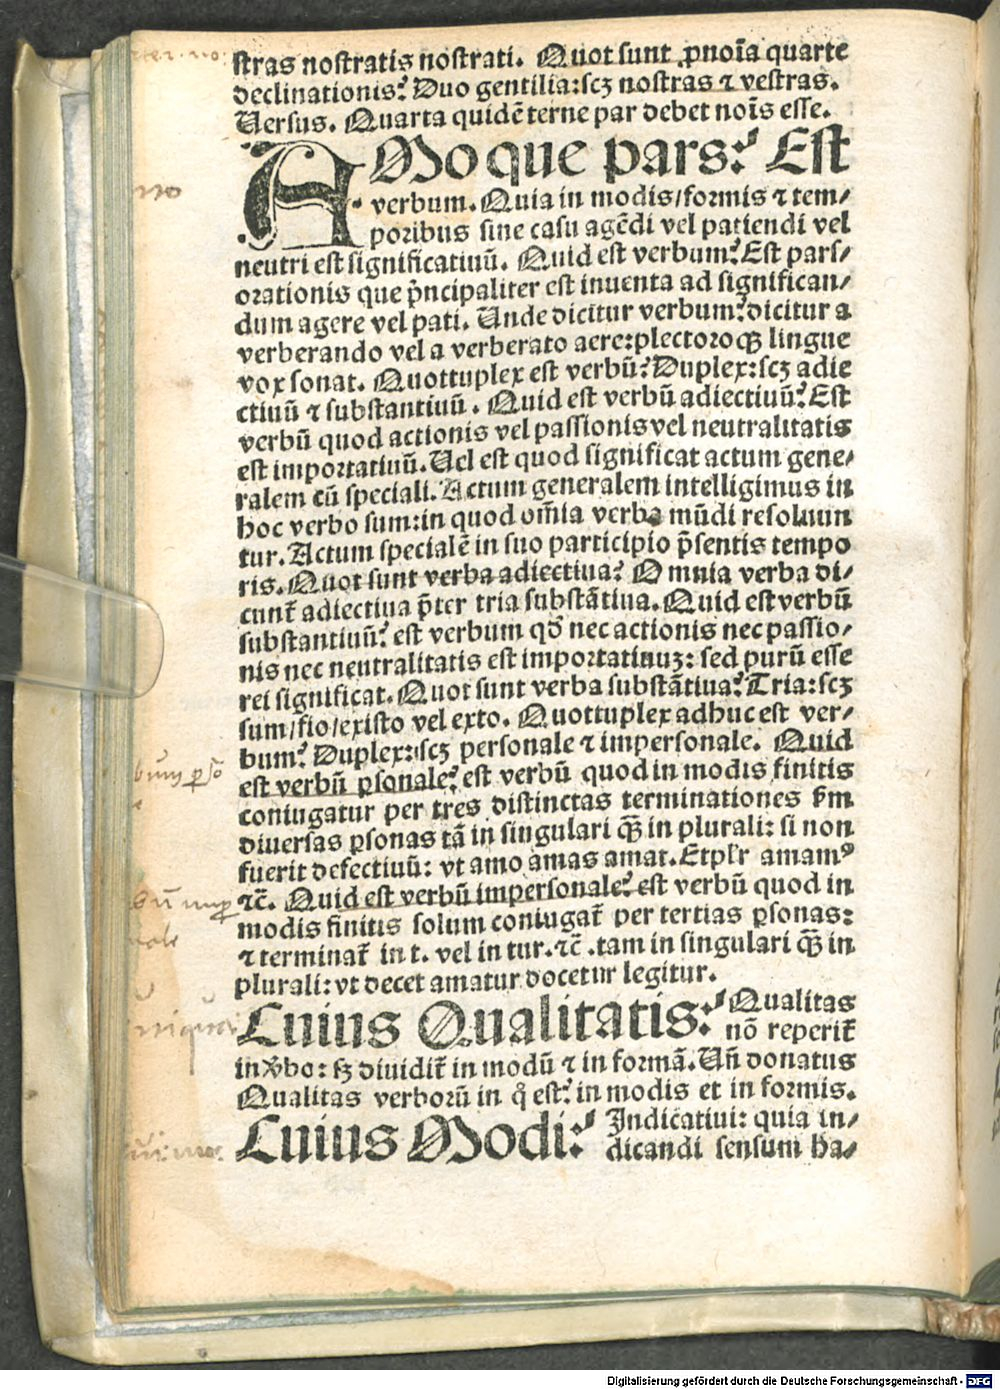 stras nostratis nostrati. Quot sunt ꝓnoīa quarte
declinationis? Duo gentilia: scꝫ nostras ⁊ vestras.
Uersus. Quarta quidē terne par debet noīs esse.
AMo que pars? Est
verbum. Quia in modis/formis ⁊ tem/
poribus sine casu agēdi vel patiendi vel
neutri est significatiuū. Quid est verbum? Est pars/
orationis que p̄ncipaliter est inuenta ad significan/
dum agere vel pati. Unde dicitur verbum? dicitur a
verberando vel a verberato aere: plectoro qꝫ lingue
vox sonat. Quottuplex est verbū? Duplex: scꝫ adie
ctiuū ⁊ substantiuū. Quid est verbū adiectiuū? Est
verbū quod actionis vel passionis vel neutralitatis
est importatiuū. Uel est quod significat actum gene/
ralem cū speciali. Actum generalem intelligimus in
hoc verbo sum: in quod om̄ia verba mūdi resoluun
tur. Actum specialē in suo participio p̄sentis tempo
ris. Quot sunt verba adiectiua? Omnia verba di/
cunt̄ adiectiua p̄ter tria substātiua. Quid est verbū
substantiuū? est verbum qd̄ nec actionis nec passio/
nis nec neutralitatis est importatiuuꝫ: sed purū esse
rei significat. Quot sunt verba substātiua? Tria: scꝫ
sum/fio/existo vel exto. Quottuplex adhuc est ver/
bum? Duplex: scꝫ personale ⁊ impersonale. Quid
est verbū ꝑsonale? est verbū quod in modis finitis
coniugatur per tres distinctas terminationes ẜm
diuersas ꝑsonas tā in singulari qꝫ̄ in plurali: si non
fuerit defectiuū: vt amo amas amat. Et pl̄r amamꝰ
⁊c̄. Quid est verbū impersonale? est verbū quod in
modis finitis solum coniugat̄ per tertias ꝑsonas:
⁊ terminat̄ in t. vel in tur. ⁊c̄. tam in singulari qꝫ̄ in
plurali: vt decet amatur docetur legitur.
Cuius Qualitatis? Qualitas
nō reperit̄
in v̄bo: sꝫ diuidit̄ in modū ⁊ in formā. Uñ donatus
Qualitas verborū in q̊ est? in modis et in formis.
Cuius Modi? Indicatiui: quia in/
dicandi sensum ha/
Digitalisierung gefördert durch die Deutsche Forschungsgemeinschaft - DFG